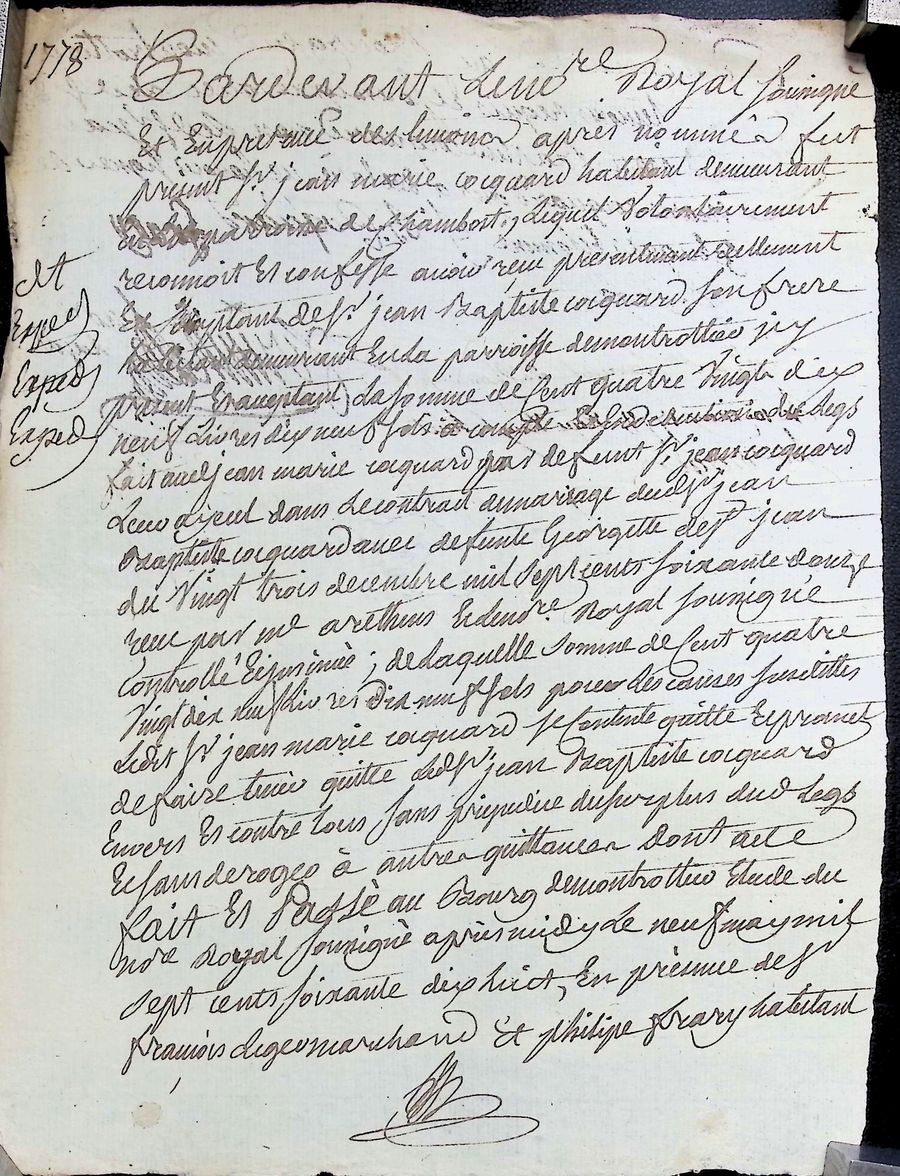 1778
Pardevant Le no.re Royal soussigné
Et En presence des temoins apres nommés fut
present s.r jean marie cocquard habitant demeurant
parroisse de Chambost, Lequel Volontairement
reconnoit Et confesse avoir reçu presentement reellement
Et Comptant de s.r jean Baptiste cocquard son frere
habitant demeurant En la parroisse de montrottier icy
present Et acceptant, La somme de Cent quatre Vingt dix
neuf Livres dix neuf sols à compte Legs
fait aud jean marie cocquard par defunt s.r jean cocquard
Leur ayeul dans Le contrait de mariage dud s.r jean
Baptiste cocquard avec defunte Georgette de s.t jean
du Vingt trois decembre mil sept cents soixante douze
recu par m.e no.re Royal soussigné
Controllé Et insinué; de Laquelle somme de Cent quatre
Vingt dix neuf Livres Dix neuf sols pour Les causes susdittes
Ledit s.r jean marie cocquard se Contente quitte Et promet
de faire tenir quitte Led s.r jean Baptiste cocquard
Envers Et contre tous sans prejudice du surplus dud Legs
Et sans deroger à autres quittances Dont acte
fait Et Passé au Bourg de montrottier Etude du
no.re Royal soussigné apres midy Le neuf may mil
sept cents soixante dix huit, En présence de s.r
francois Leger marchand Et philipe frary habitant
dt
Exped
Exped
Exped